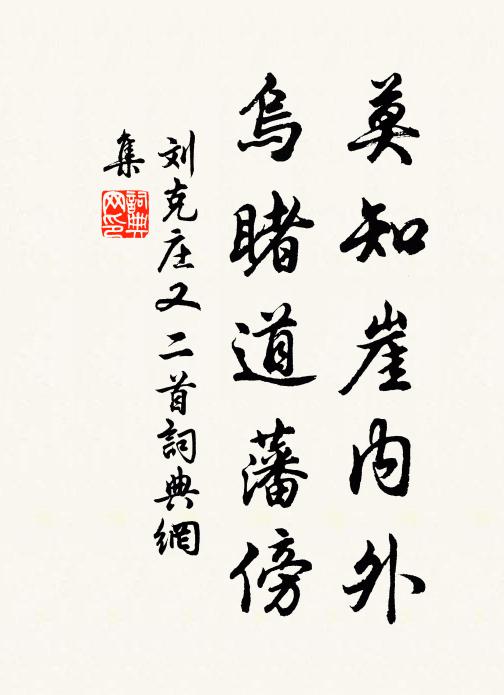 莫知崖内外
烏睹道藩傍
刘克庄又二首詞典網
集
詞典
网印